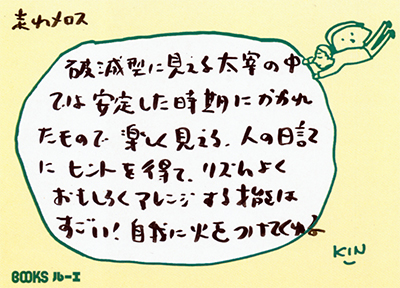 走れメロス
破滅型に見える太宰の中
では安定した時期にかかれ
たもので楽しく見える。人の日記
にヒントを得て、リズムよく
おもしろくアレンジする指は
すごい！自分に火をつけてくれる
KIN
BOOKS ルーエ